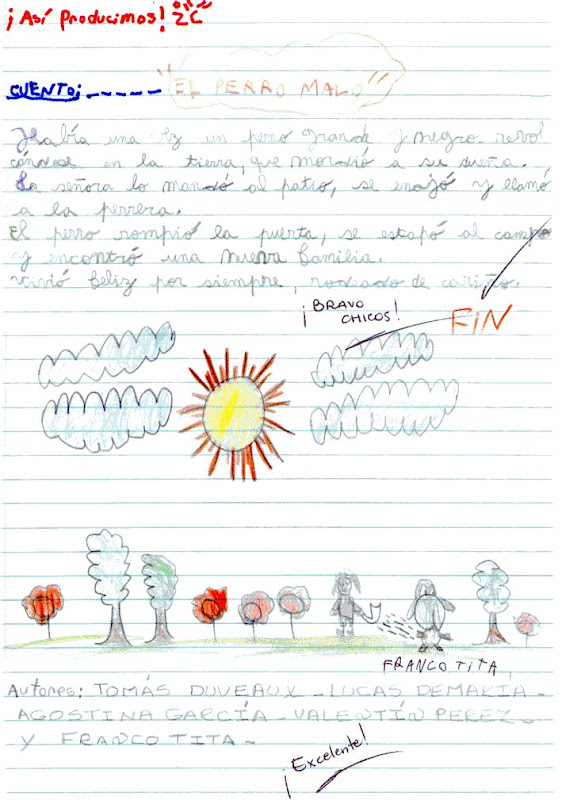 ¡Así Producimos! 2ºC
CUENTO: _ _ _ _ _ "EL PERRO MALO"
Había una vez un perro grande y negro revol
cándose en la tierra, que mordió a su dueña.
La señora lo mandó al patio, se enojó y llamó
a la perrera.
El perro rompió la puerta, se escapó al campo
y encontró una nueva familia.
Vivió feliz por siempre, rodeado de cariño.
¡BRAVO
CHICOS!
FIN
FRANCO TITA
Autores: TOMÁS DUVEAUX - LUCAS DEMARÍA -
AGOSTINA GARCÍA - VALENTÍN PEREZ -
Y FRANCO TITA -
¡Excelente!